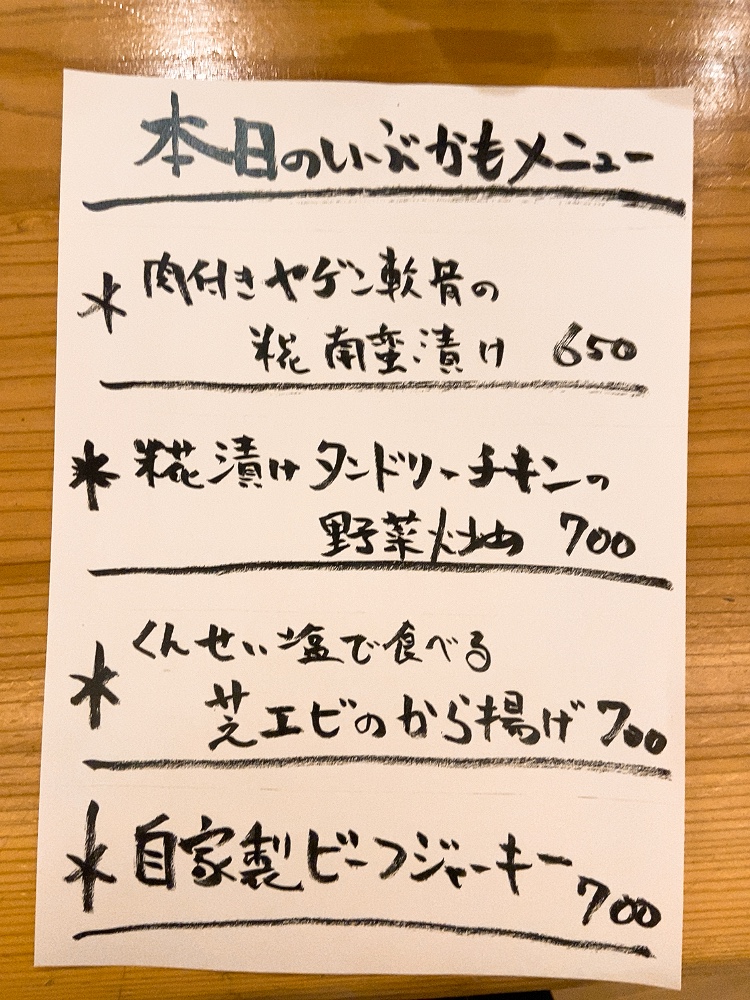 本日のいぶかもメニュー
* 肉付きヤゲン軟骨の
糀南蛮漬け 650
* 糀漬けタンドリーチキンの
野菜炒め 700
* くんせい塩で食べる
芝エビのから揚げ 700
* 自家製ビーフジャーキー
700